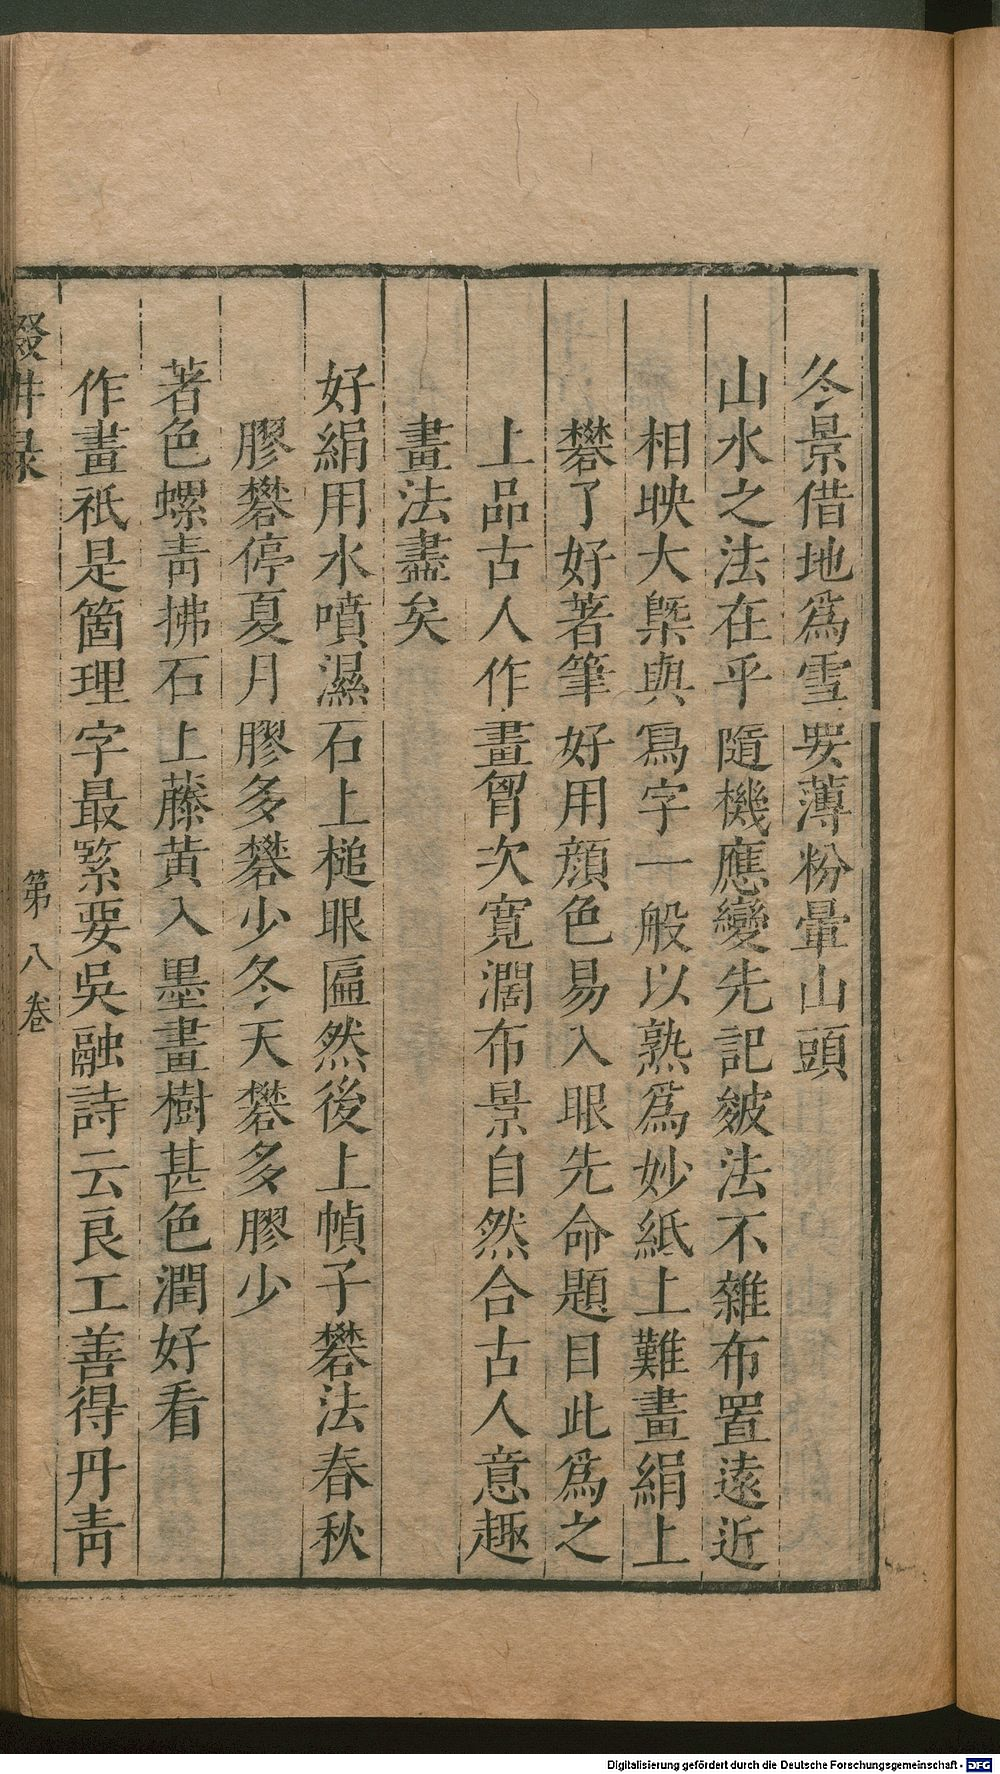 冬景借地爲雪要薄粉暈山頭
山水之法在乎隨機應變先記皴法不雜布置遠近
相映大槩與寫字一般以熟爲妙紙上難畫絹上
礬了好著筆好用顔色易入眼先命題目此爲之
上品古人作畫胷次寬濶布景自然合古人意趣
畫法盡矣
好絹用水噴濕石上槌眼匾然後上幀子礬法春秋
膠礬停夏月膠多礬少冬天礬多膠少
著色螺靑拂石上藤黄入墨畫樹甚色潤好看
作畫祇是箇理字最緊要吳融詩云良工善得丹靑
輟畊録
第八卷
Digitalisierung gefördert durch die Deutsche Forschungsgemeinschaft - DFG